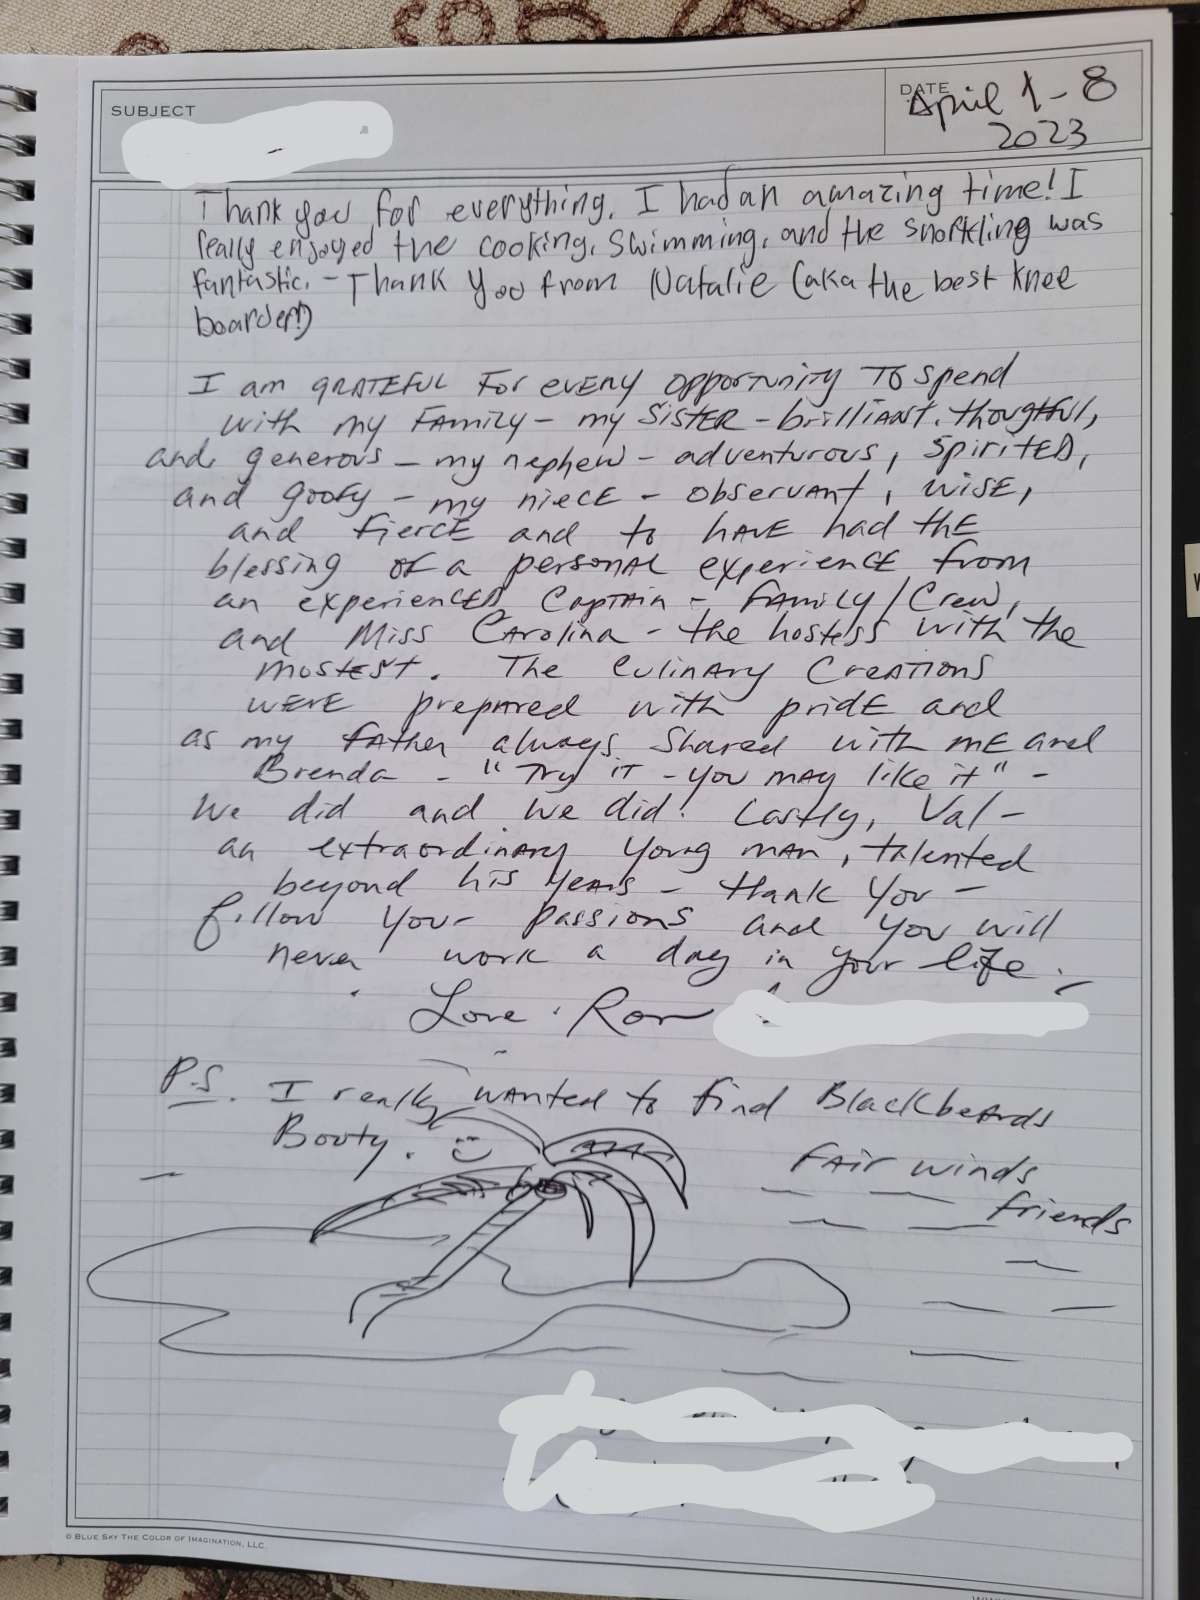 SUBJECT
DATE
April 1-8
2023
Thank you for everything. I had an amazing time! I
really enjoyed the cooking, swimming, and the snorkling was
fantastic. - Thank you from Natalie (aka the best knee
boarder!!)
I am GRATEFUL FOR EVERY OPPORTUNITY TO Spend
with my FAMILY - my SISTER - brilliant, thoughtful,
and generous - my nephew - adventurous, SPIRITED,
and goofy - my niece - observant, WISE,
and fierce and to HAVE had the
blessing of a personal experience from
an experienced Captain - FAMILY/Crew,
and Miss Carolina - the hostess with the
mostest. The Culinary Creations
WERE prepared with pride and
as my father always shared with me and
Brenda - "Try it - you may like it" -
We did and we did! Lastly, Val -
an extraordinary young man, talented
beyond his years - thank you -
follow your passions and you will
never work a day in your life.
Love, Ron
P.S. I really wanted to find Blackbeards
Booty.
FAIR winds
friends
© BLUE SKY THE COLOR OF IMAGINATION, LLC.